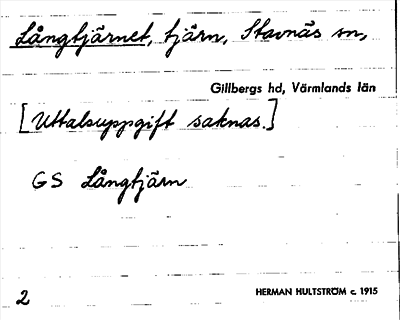 Långtjärnet, tjärn, Stavnäs sn,
Gillbergs hd, Värmlands län
[Uttalsuppgift saknas.]
GS Långtjärn
2 HERMAN HULTSTRÖM c. 1915